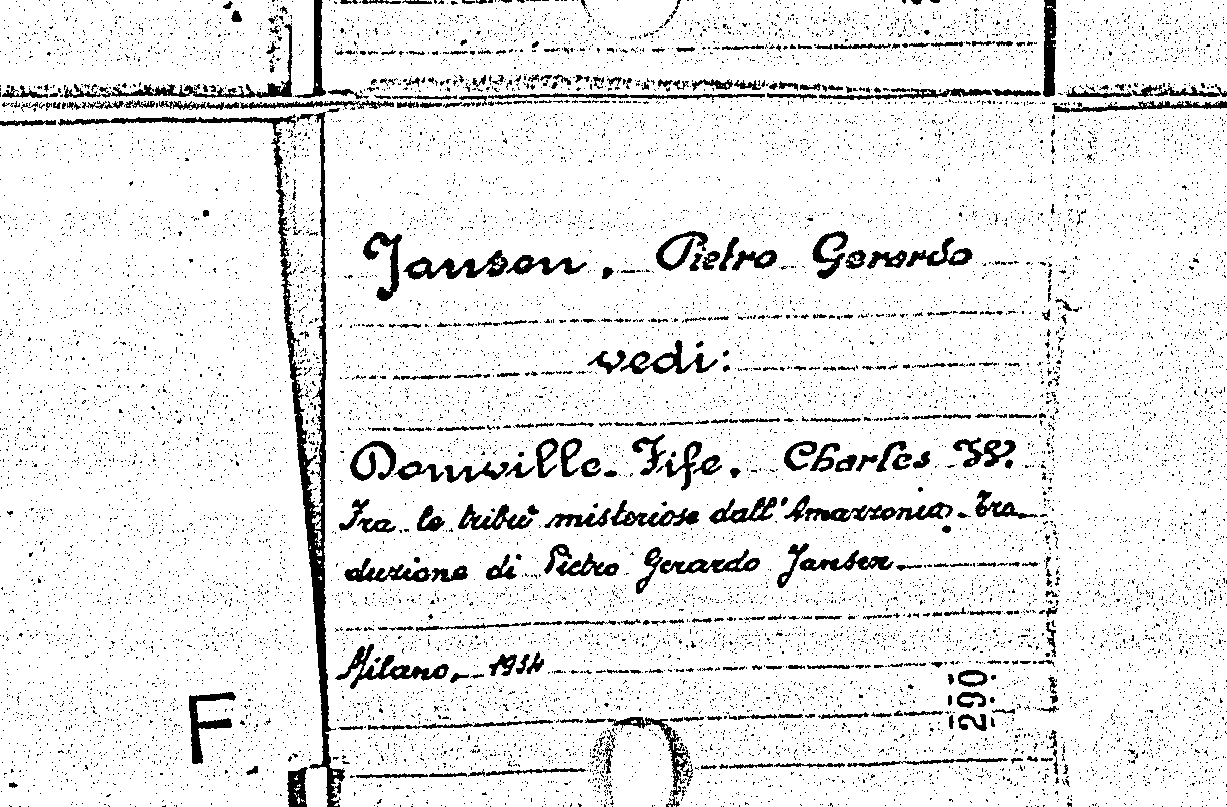 Jansen, Pietro Gerardo
vedi:
Domville-Fife, Charles W.
Fra le tribù misteriose dall'Amazzonia. Tra
duzione di Pietro Gerardo Jansen.
Milano, 1934
F
290